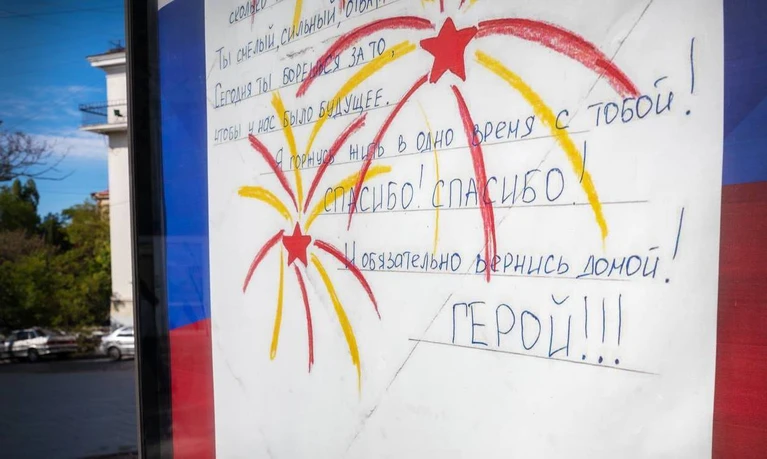 сколько
Ты смелый, сильный, отва
Сегодня ты борешься за то,
чтобы у нас было будущее.
Я горжусь жить в одно время с тобой!
СПАСИБО! СПАСИБО!
И обязательно вернись домой!
ГЕРОЙ!!!